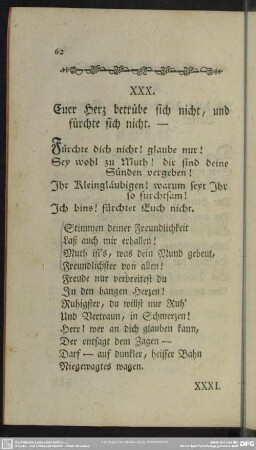 62
XXX.
Euer Herz betrübe sich nicht, und
fürchte sich nicht. —
Fürchte dich nicht! glaube nur!
Sey wohl zu Muth! dir sind deine
Sünden vergeben!
Ihr Kleingläubigen! warum seyt Ihr
so furchtsam!
Ich bins! fürchtet Euch nicht.
Stimmen deiner Freundlichkeit
Laß auch mir erhallen!
Muth ist's, was dein Mund gebeut,
Freundlichster von allen!
Freude nur verbreitest du
In den bangen Herzen!
Ruhigster, du willst nur Ruh'
Und Vertraun, in Schmerzen!
Herr! wer an dich glauben kann,
Der entsagt dem Zagen —
Darf — auf dunkler, heisser Bahn
Niegewagtes wagen.
XXXI.